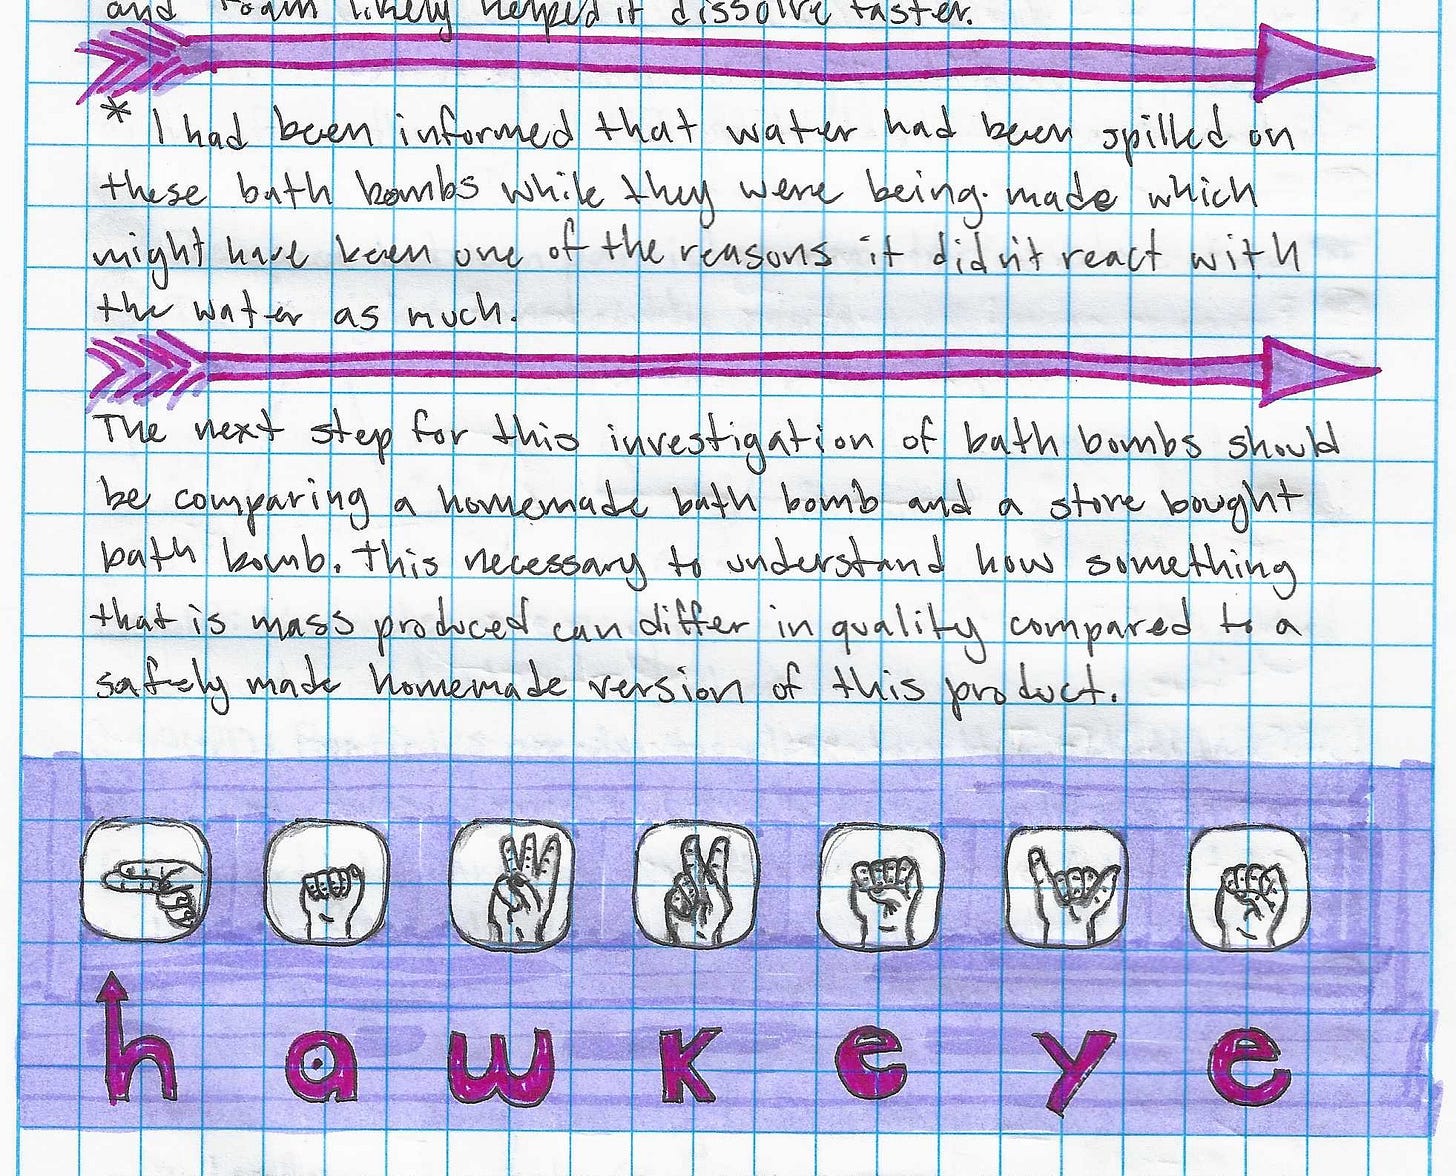 and foam likely helped it dissolve faster.
* I had been informed that water had been spilled on
these bath bombs while they were being made which
might have been one of the reasons it didn't react with
the water as much.
The next step for this investigation of bath bombs should
be comparing a homemade bath bomb and a store bought
bath bomb. This necessary to understand how something
that is mass produced can differ in quality compared to a
safely made homemade version of this product.
hawkeye